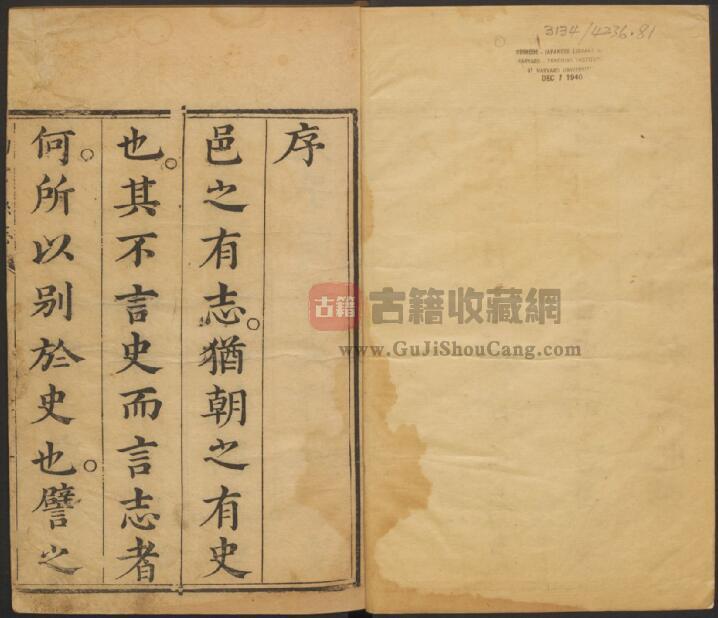 序
邑之有志。猶朝之有史
也。其不言史而言志者
何。所以別於史也。譬之
3134/4236.81
CHINESE - JAPANESE LIBRARY
HARVARD - YENCHING INSTITUTE
AT HARVARD UNIVERSITY
DEC 1 1940
古籍
古籍收藏網
www.GuJiShouCang.com